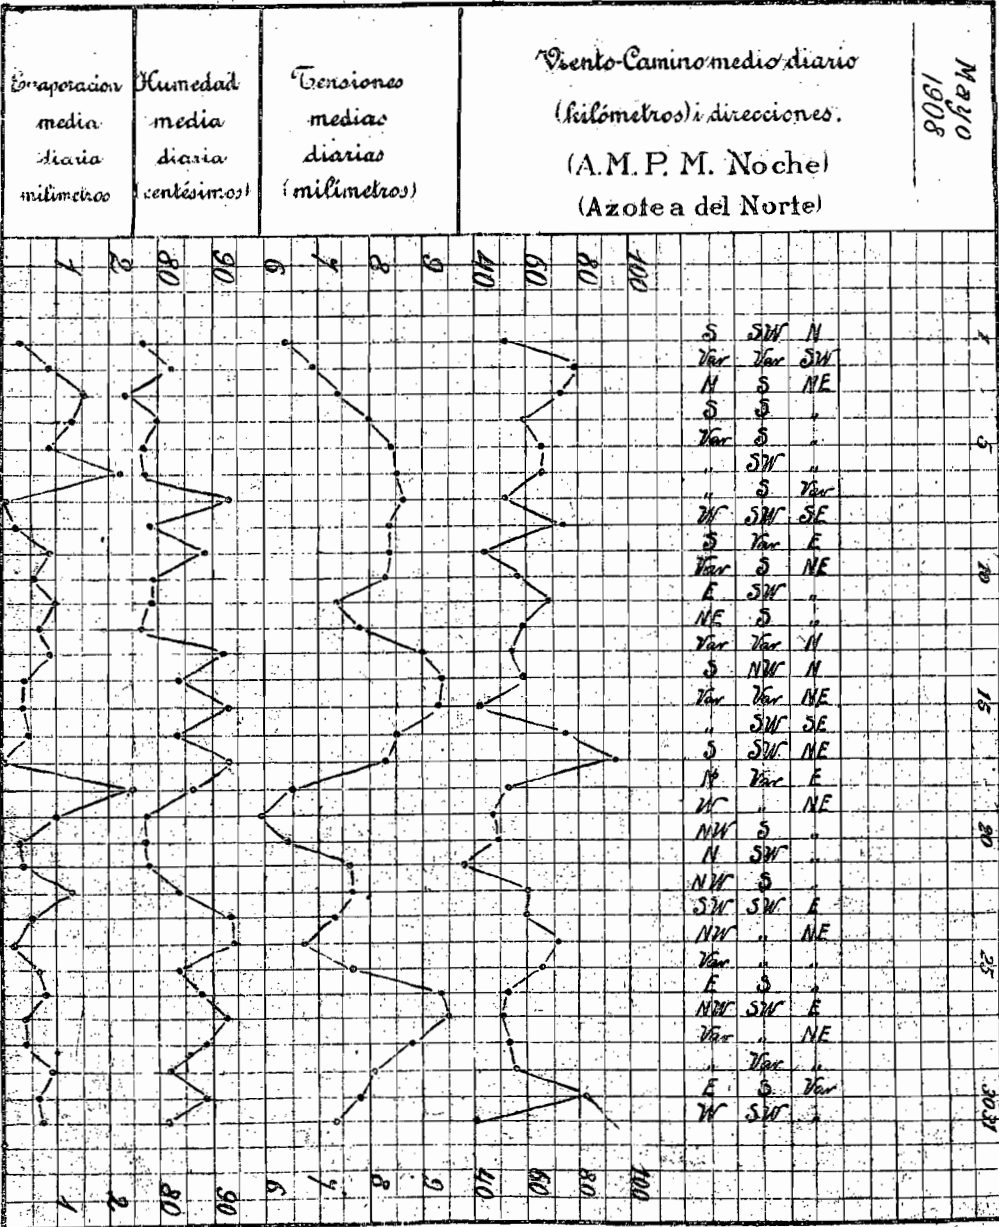 Evaporacion
media
diaria
milimetros
Humedad
media
diaria
(centésimos)
Tensiones
medias
diarias
(milimetros)
Viento-Camino medio diario
(kilómetros) i direcciones.
(A.M. P. M. Noche)
(Azotea del Norte)
Mayo
1908
1 2 80 90 6 7 8 9 40 60 80 100
S SW N 1
Var Var SW
N S NE
S S "
Var S " 5
" SW "
" S Var
W SW SE
S Var E
Var S NE 10
E SW "
NE S "
Var Var N
S NW N
Var Var NE 15
" SW SE
S SW NE
N Var E
W " NE
NW S " 20
N SW "
NW S "
SW SW E
NW " NE
Var " " 25
E S "
NW SW E
Var " NE
" Var "
E S Var 30
W SW " 31
1 2 80 90 6 7 8 9 40 60 80 100